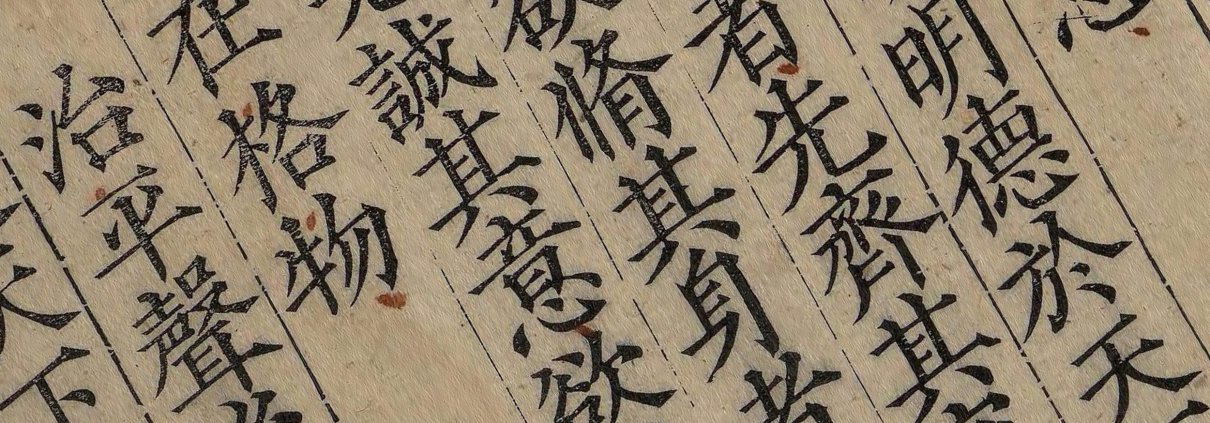 明德於天
者先齊其
欲脩其身者
誠其意欲
在格物
治平聲
天下